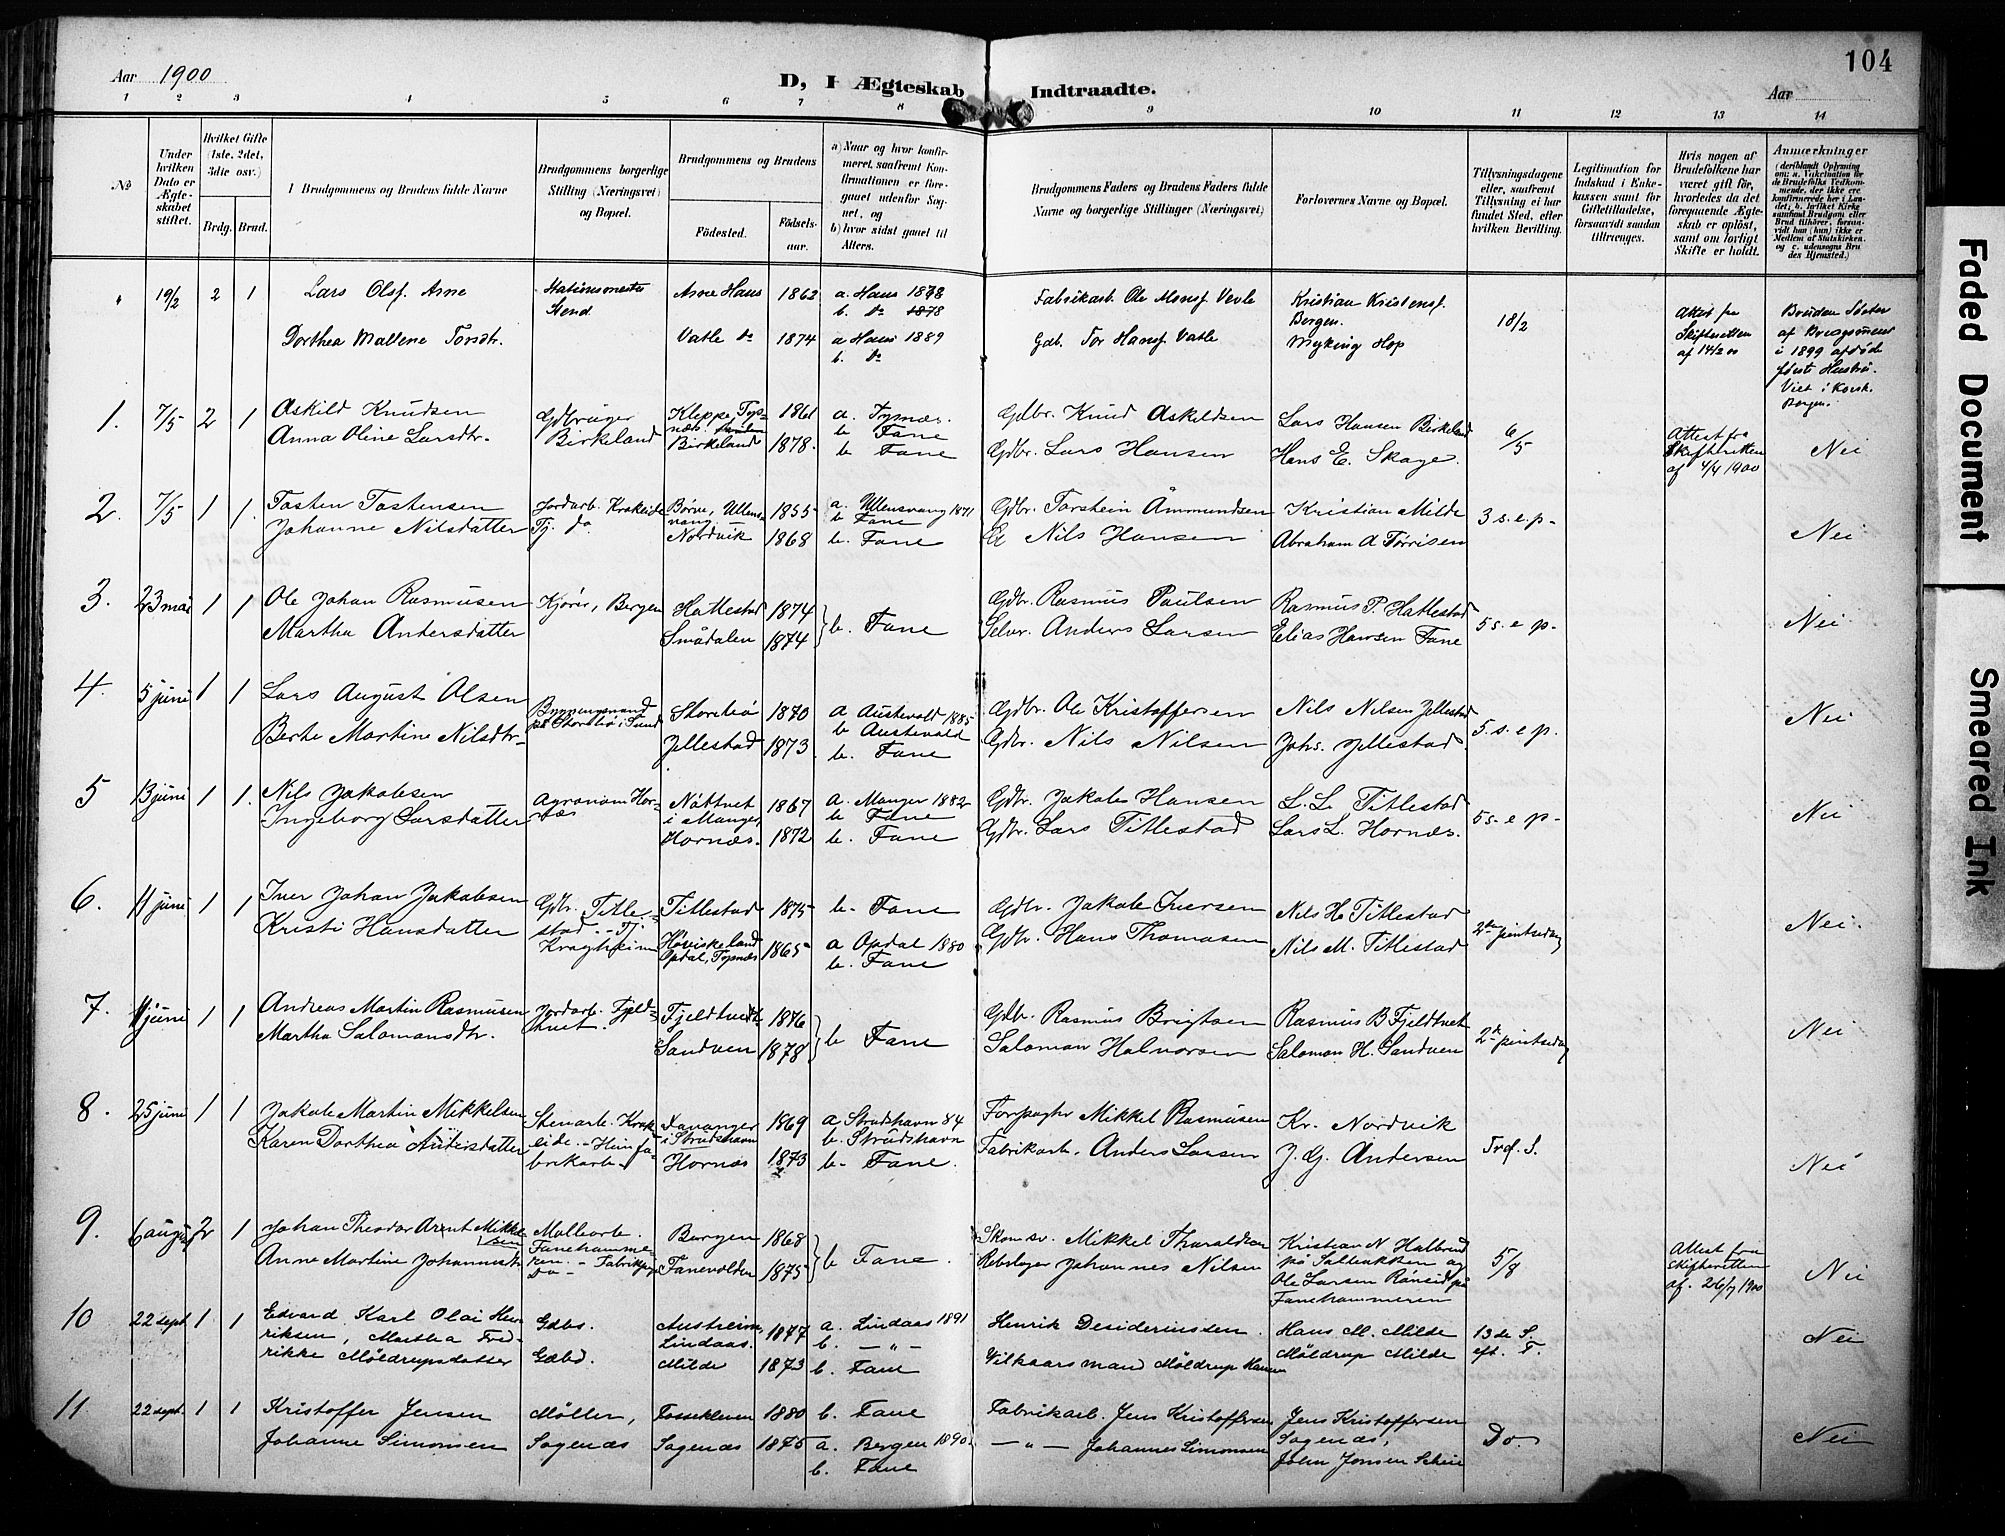 104
Aar 1900
D, I Ægteskab Indtraadte.
Aar
1 2 3 4 5 6 7 8 9 10 11 12 13 14
№
Under hvilken Dato er Ægteskabet stiftet.
Hvilket Gifte (1ste, 2det, 3die osv.)
Brdg. Brud.
Brudgommens og Brudens fulde Navne
Brudgommens borgerlige Stilling (Næringsvei) og Bopæl.
Brudgommens og Brudens
Fødested.
Fødselsaar.
a) Naar og hvor konfirmeret, saafremt Konfirmationen er foregaaet udenfor Sognet, og
b) hvor sidst gaaet til Alters.
Brudgommens Faders og Brudens Faders fulde Navne og borgerlige Stillinger (Næringsvei)
Forlovernes Navne og Bopæl.
Tillysningsdagene eller, saafremt Tillysning ei har fundet Sted, efter hvilken Bevilling.
Legitimation for Indskud i Enkekassen samt for Giftetilladelse, forsaavidt saadan tiltrænges.
Hvis nogen af Brudefolkene har været gift før, hvorledes da det foregaaende Ægteskab er opløst, samt om lovligt Skifte er holdt.
Anmærkninger
19/2 2 1 Lars Olsf. Arne Stationsmester Stend Arne Haus 1862 a. Haus 1878 b. do 1878 Fabrikarb. Ole Monsf. Vevle Kristian Kristensf. Bergen. 18/2 Attest fra Skifteretten af 14/2 00
Dorthea Mallene Torsdtr. Vatle do 1874 a Haus 1889 b. do Gdb. Tor Hansf. Vatle Myking Hop
Bruden Søster af Brudgommens i 1899 afdøde første Hustru. Viet i Korsk. Bergen.
1. 7/5 2 1 Askild Knudsen Gdbruger Birkeland Kleppe, Tysnæs 1861 a. Tysnæs. b. Fane Gdbr. Knud Askildsen Lars Hansen Birkeland 6/5 Attest fra Skifteretten af 4/4 1900 Nei
Anna Oline Larsdtr. Birkeland 1878. b. Fane Gdbr. Lars Hansen Hans E. Skage.
2. 7/5 1 1. Tosten Tostensen Jordarb. Krokeide Børve, Ullensvang 1855 a. Ullensvang 1871 b. Fane Gdbr. Torstein Åmmundsen Kristian Milde 3 s. e. p. Nei
Johanne Nilsdatter Tj. do Nordvik 1868 b. Fane Nils Hansen Abraham A Tørrisen
3. 23 mai 1 1 Ole Johan Rasmusen Kjører, Bergen Hattestad 1874 b. Fane Gdbr. Rasmus Paulsen Rasmus P. Hattestad 5 s. e. p. Nei
Martha Andersdatter Smådalen 1874 Selvr. Anders Larsen Elias Hansen Fane
4. 5 juni 1 1 Lars August Olsen på Storebø i Sund Storebø 1870 a Austevold 1885 b Austevold Gdbr. Ole Kristoffersen Nils Nilsen Jellestad 5. s. e. p. Nei
Berte Martine Nilsdtr. Jellestad 1873 b. Fane Gdbr. Nils Nilsen Johs. Jellestad
5 13 juni 1 1. Nils Jakobsen Agronom Hornæs Nåttvet i Manger, 1867 a. Manger 1882 b Fane Gdbr. Jakob Hansen L. L. Titlestad 5 s. e. p. Nei
Ingeborg Larsdatter Hornæs. 1872 b. Fane Gdbr. Lars Titlestad Lars L. Hornæs.
6. 11 juni 1 1 Iver Johan Jakobsen Gdbr. Titlestad - Tj. Titlestad 1875 b. Fane Gdbr. Jakob Iversen Nils H. Titlestad 2den pintsedag Nei.
Kristi Hansdatter Høviskeland Opdal, Tysnæs 1865 a Opdal 1880 b. Fane Gdbr. Hans Thomasen Nils M. Titlestad
7. 11 juni 1 1 Andreas Martin Rasmusen Jordarb. Fjeldtvet Fjeldtvedt 1876 b Fane Gdbr. Rasmus Brigtsen Rasmus B Fjeldtvet 2den pintsedag Nei
Martha Salomonsdtr. Sandven 1878 Salomon Halvorsen Salomon H. Sandven
8. 25 juni 1 1 Jakob Martin Mikkelsen Stenarb. Krokeide - Hun fabrikarb. Tananger i Strudshavn 1869 a Strudshavn 84 b. Strudshavn Forpagtr Mikkel Rasmusen Kr. Nordvik Tref. S. Nei
Karen Dorthea Andersdatter Hornæs 1873 b. Fane. Fabrikarb. Anders Larsen J. G. Andersen
9. 6 august 2 1 Johan Theodor Arnt Mikkelsen Mollearb. Fanehammeren. - Fabrikpige Do Bergen 1868 b Fane. Skom.sv. Mikkel Tharaldsen Kristian N Halbrend på Saltbakken og 5/8 Attest fra Skifteretten af. 26/7 1900 Nei
Anne Martine Johannesdtr Fanevolden 1875 Rebslager Johannes Nilsen Ole Larsen Røneid på Fanehammeren
10 22 sept 1 1 Edvard Karl Olai Henriksen, Martha Fredrikke Möldrupsdatter Gdbs. Gdbd. Austreim, Lindaas. 1877 a. Lindaas 1891 b. — " — Henrik Desideriussen. Hans M. Milde 13de S. eft. T. Nei
Milde 1873 b. Fane Vilkaarsmand Möldrup Hansen Möldrup Milde
11 22 sept. 1 1 Kristoffer Jensen Möller, Fossekleven 1880 b. Fane Fabrikarb. Jens Kristoffersen Jens Kristoffersen Sagenæs, Do. Nei
Johanne Simonsen Sagenæs Sagenæs 1875 a. Bergen 1890. b. Fane — " — Johannes Simonsen John Jonsen Skeie
Faded Document
Smeared Ink